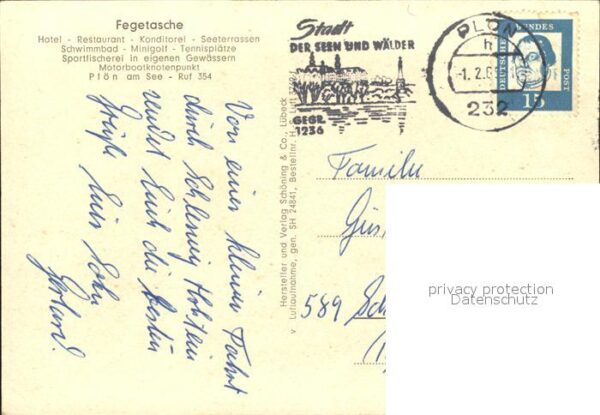 Fegetasche
Hotel - Restaurant - Konditorei - Seeterrassen
Schwimmbad - Minigolf - Tennisplätze
Sportfischerei in eigenen Gewässern
Motorbootknotenpunkt
Plön am See - Ruf 354
Von einer kleinen Fahrt
durch Schleswig Holstein
sendet Euch die besten
Grüße Euer Sohn
Gerhard.
Hersteller und Verlag Schöning & Co., Lübeck
Luftaufnahme, gen. SH 24841, Bestellnr. H.
Stadt
DER SEEN UND WÄLDER
GEGR.
1236
PLÖN
h
-1.2.6
232
DEUTSCHE BUNDESPOST
15
Familie
589
privacy protection
Datenschutz